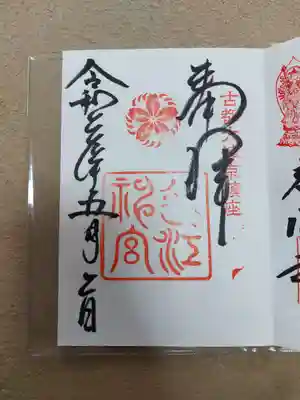 奉拝
古都大津京鎮座
近江神宮
令和 年五月 日